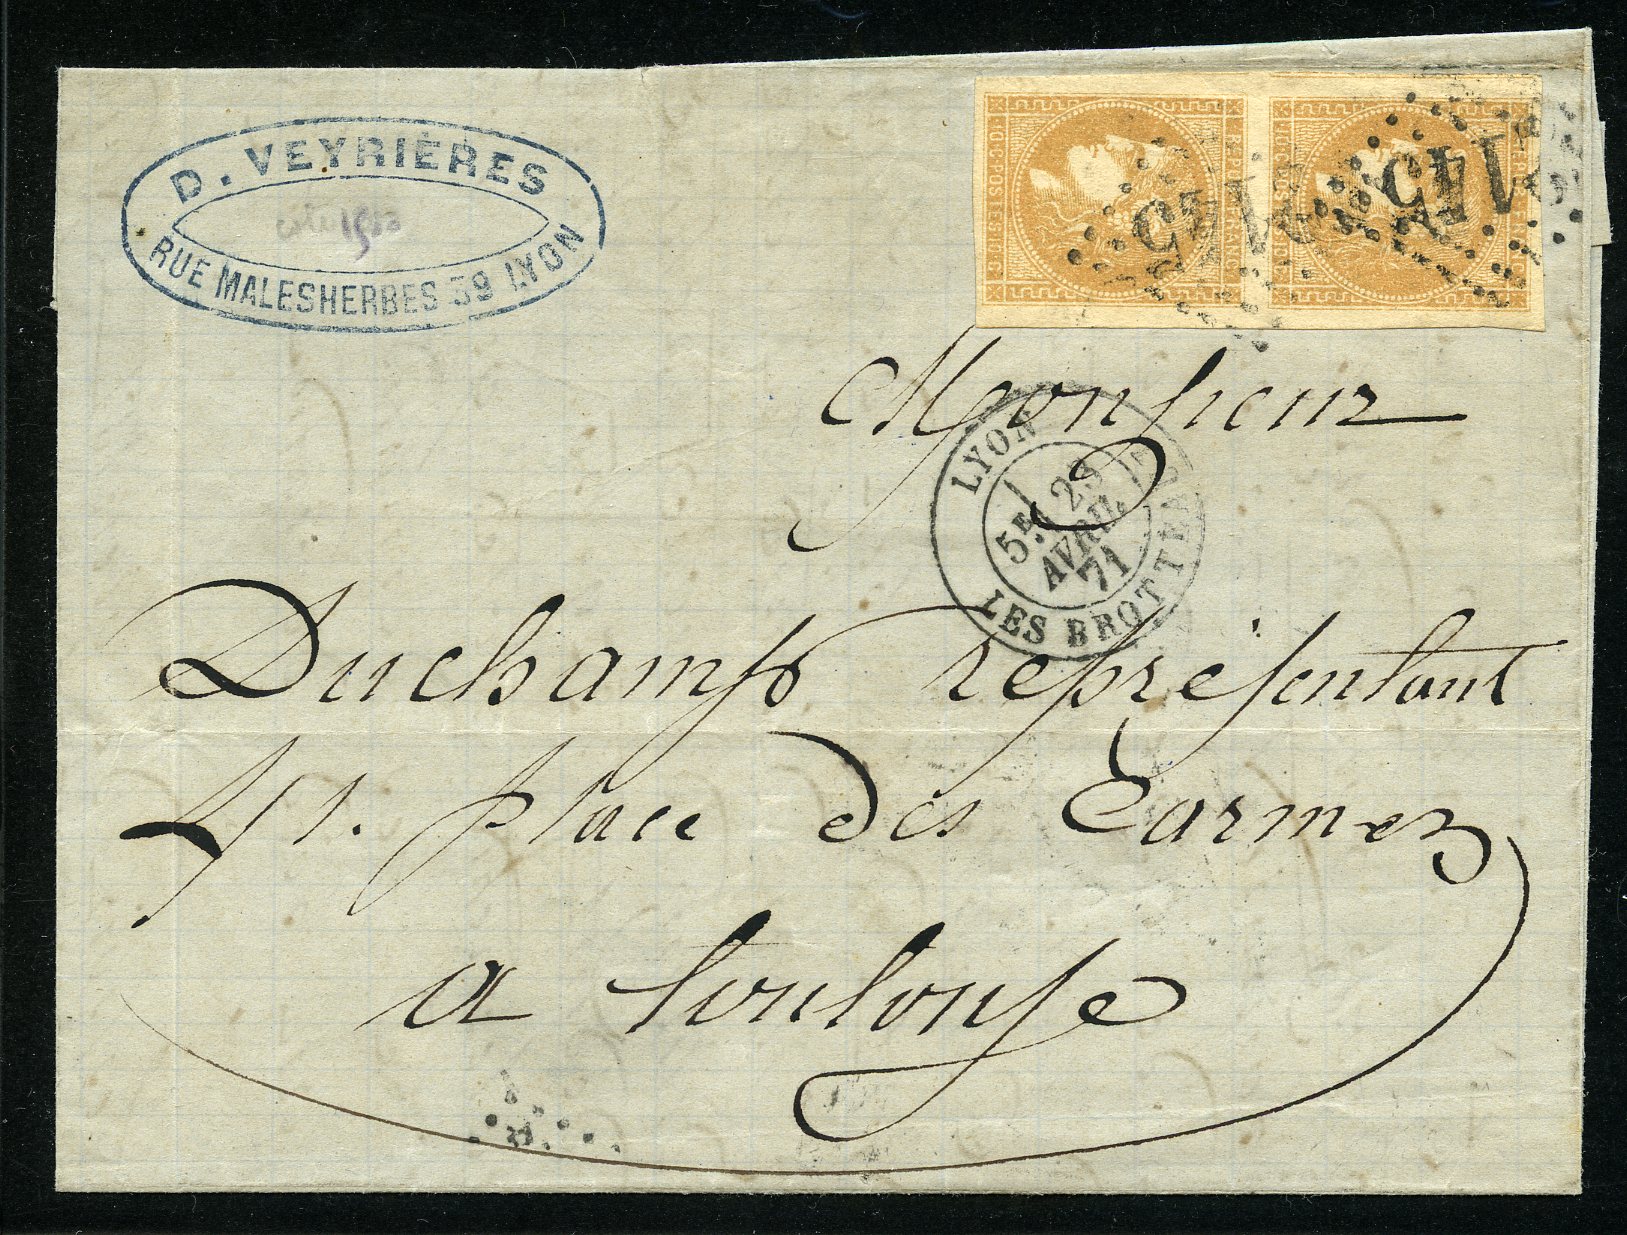 D. VEYRIÈRES
RUE MALESHERBES 39 LYON
145
145
Monsieur
LYON
5E 29
AVRIL
71
LES BROTTEAUX
Duchamps représentant
41. place des Carmes
a Toulouse